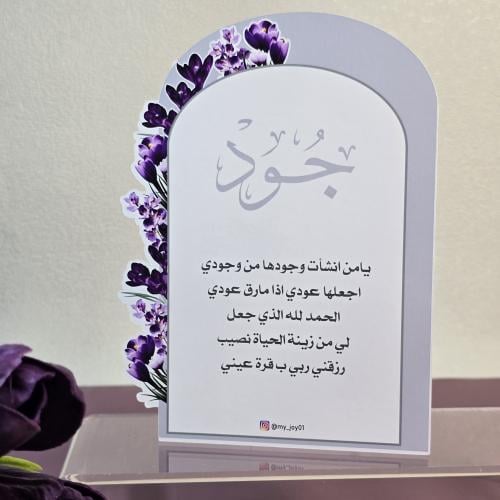 جُودْ
يامن انشأت وجودها من وجودي
اجعلها عودي اذا مارق عودي
الحمد لله الذي جعل
لي من زينة الحياة نصيب
رزقني ربي ب قرة عيني
@my_joy01